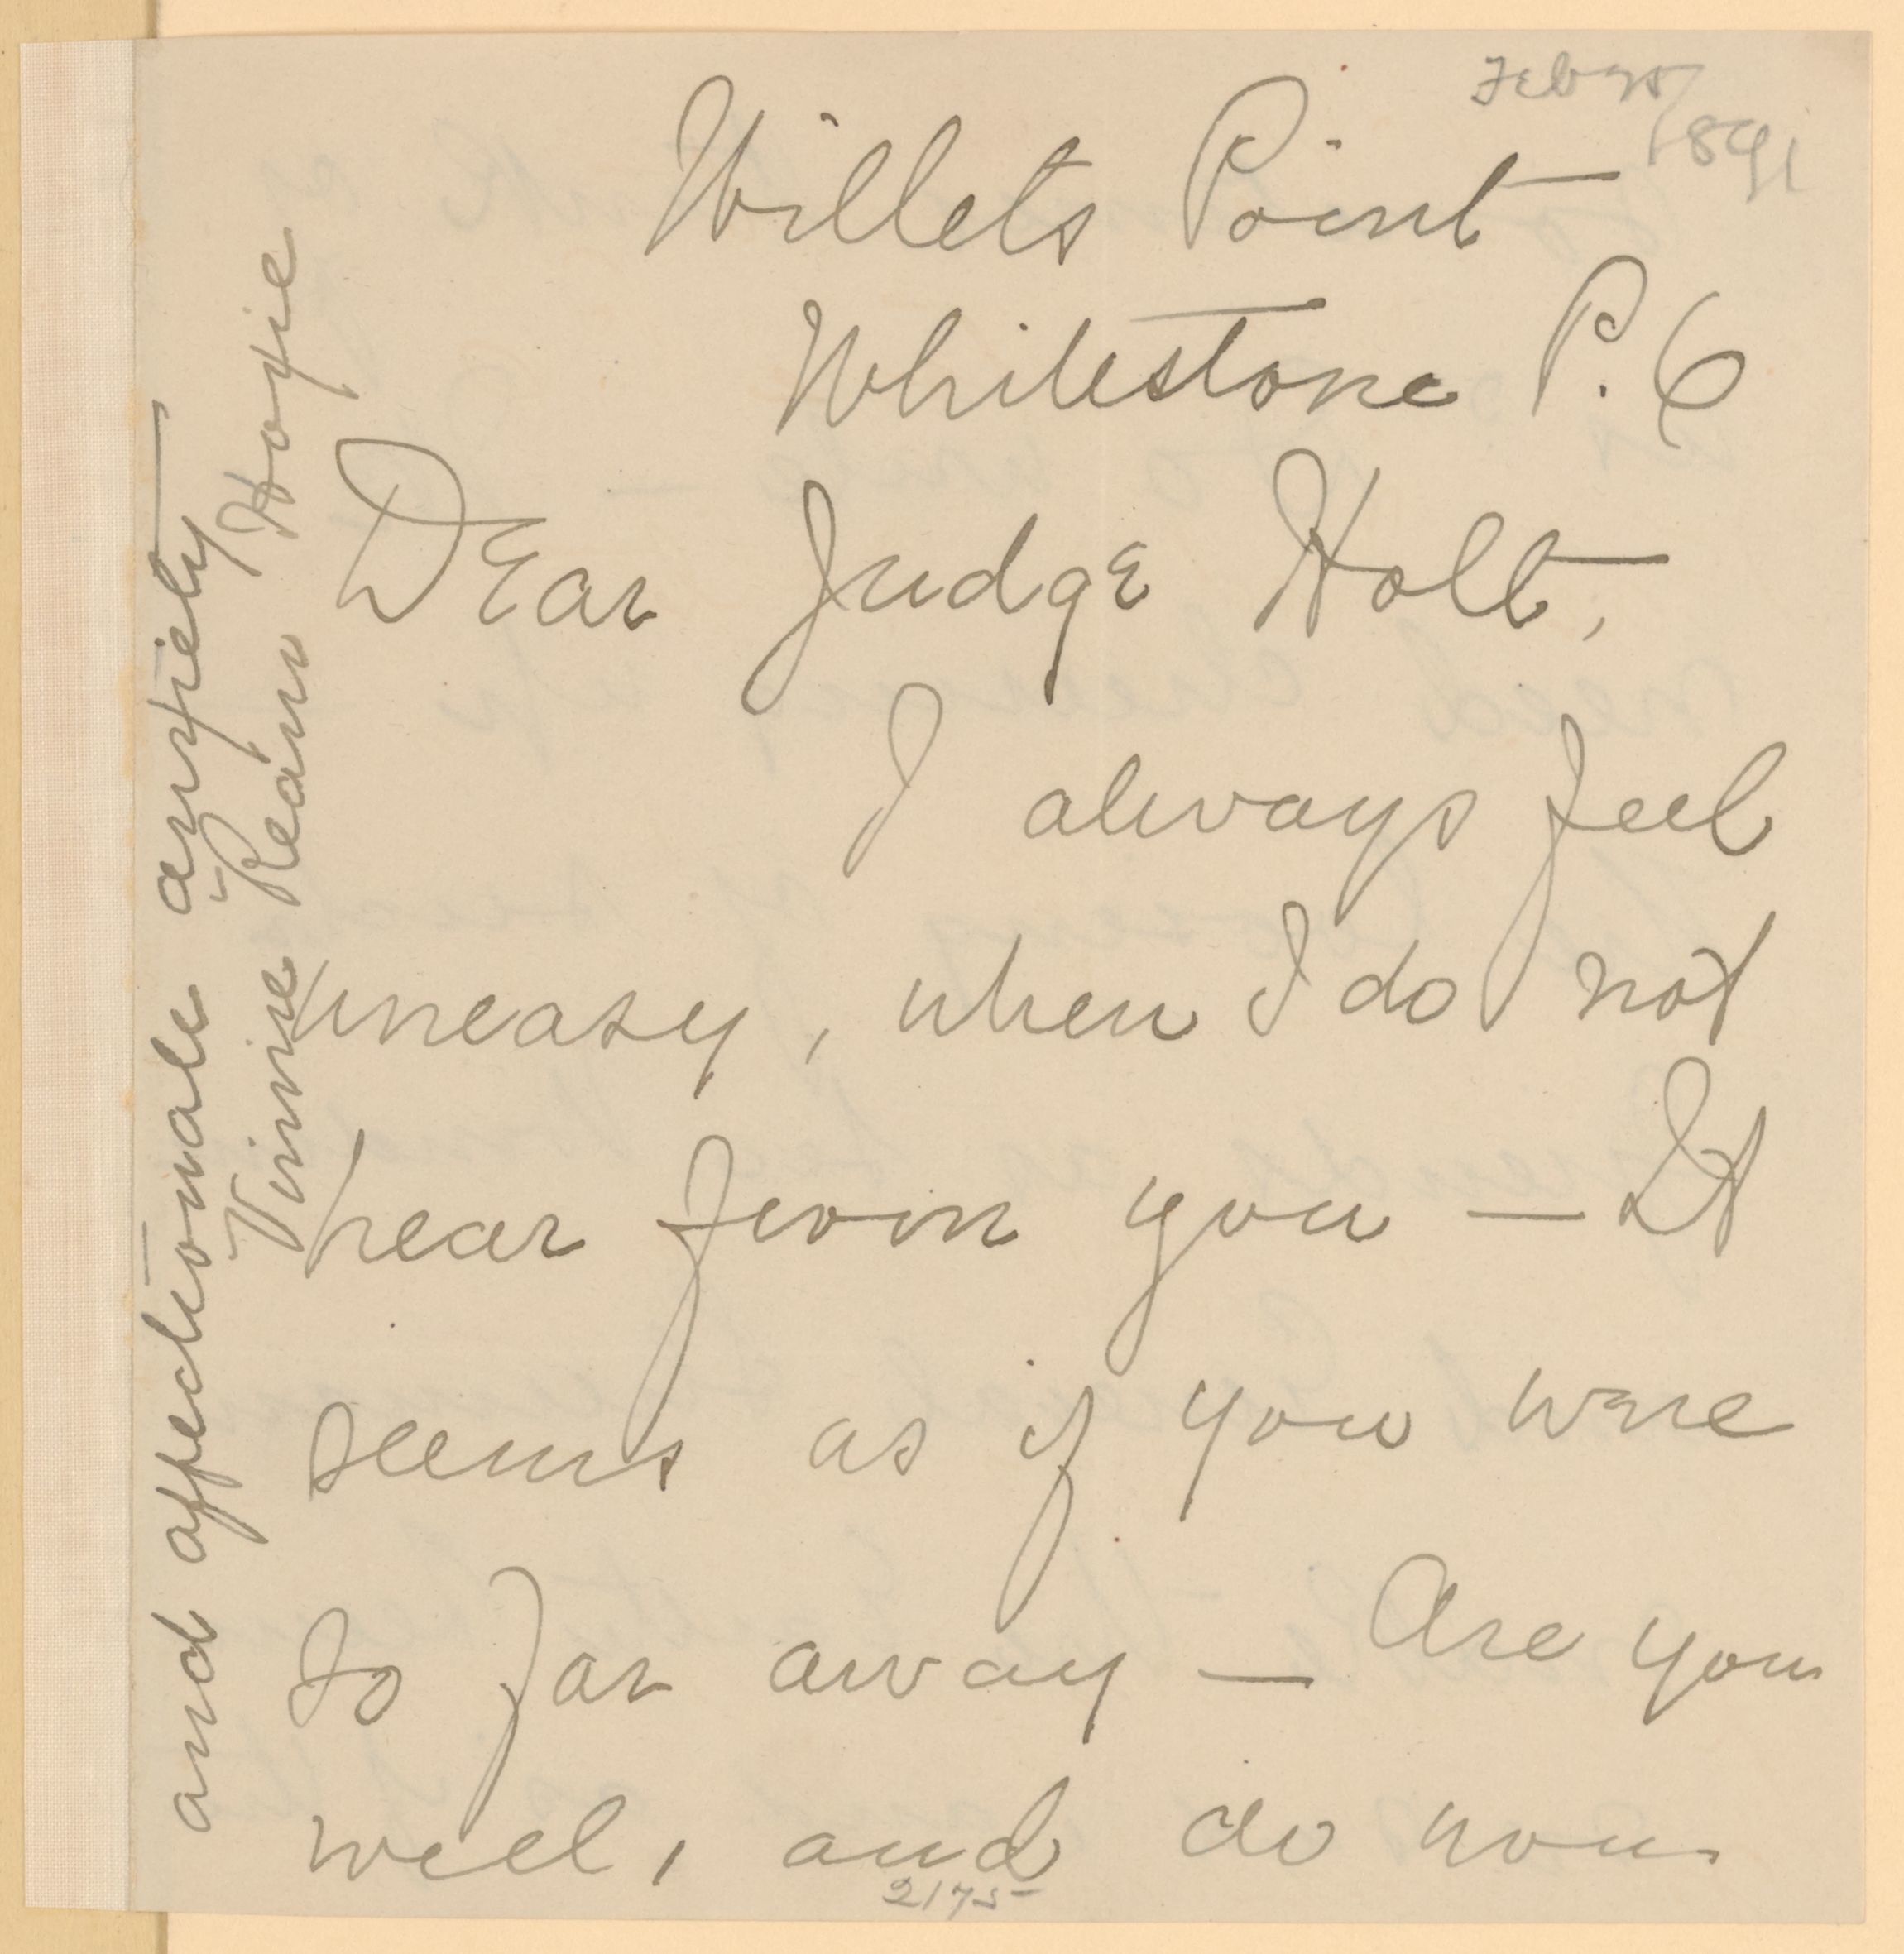 Feb 25/
1891
Willets Point
Whitestone P.O
Dear Judge Holt,
I always feel
uneasy, when I do not
hear from you — It
seems as if you were
so far away — Are you
well, and do you
2175
and affectionate anxiety
Vinnie Ream Hoxie